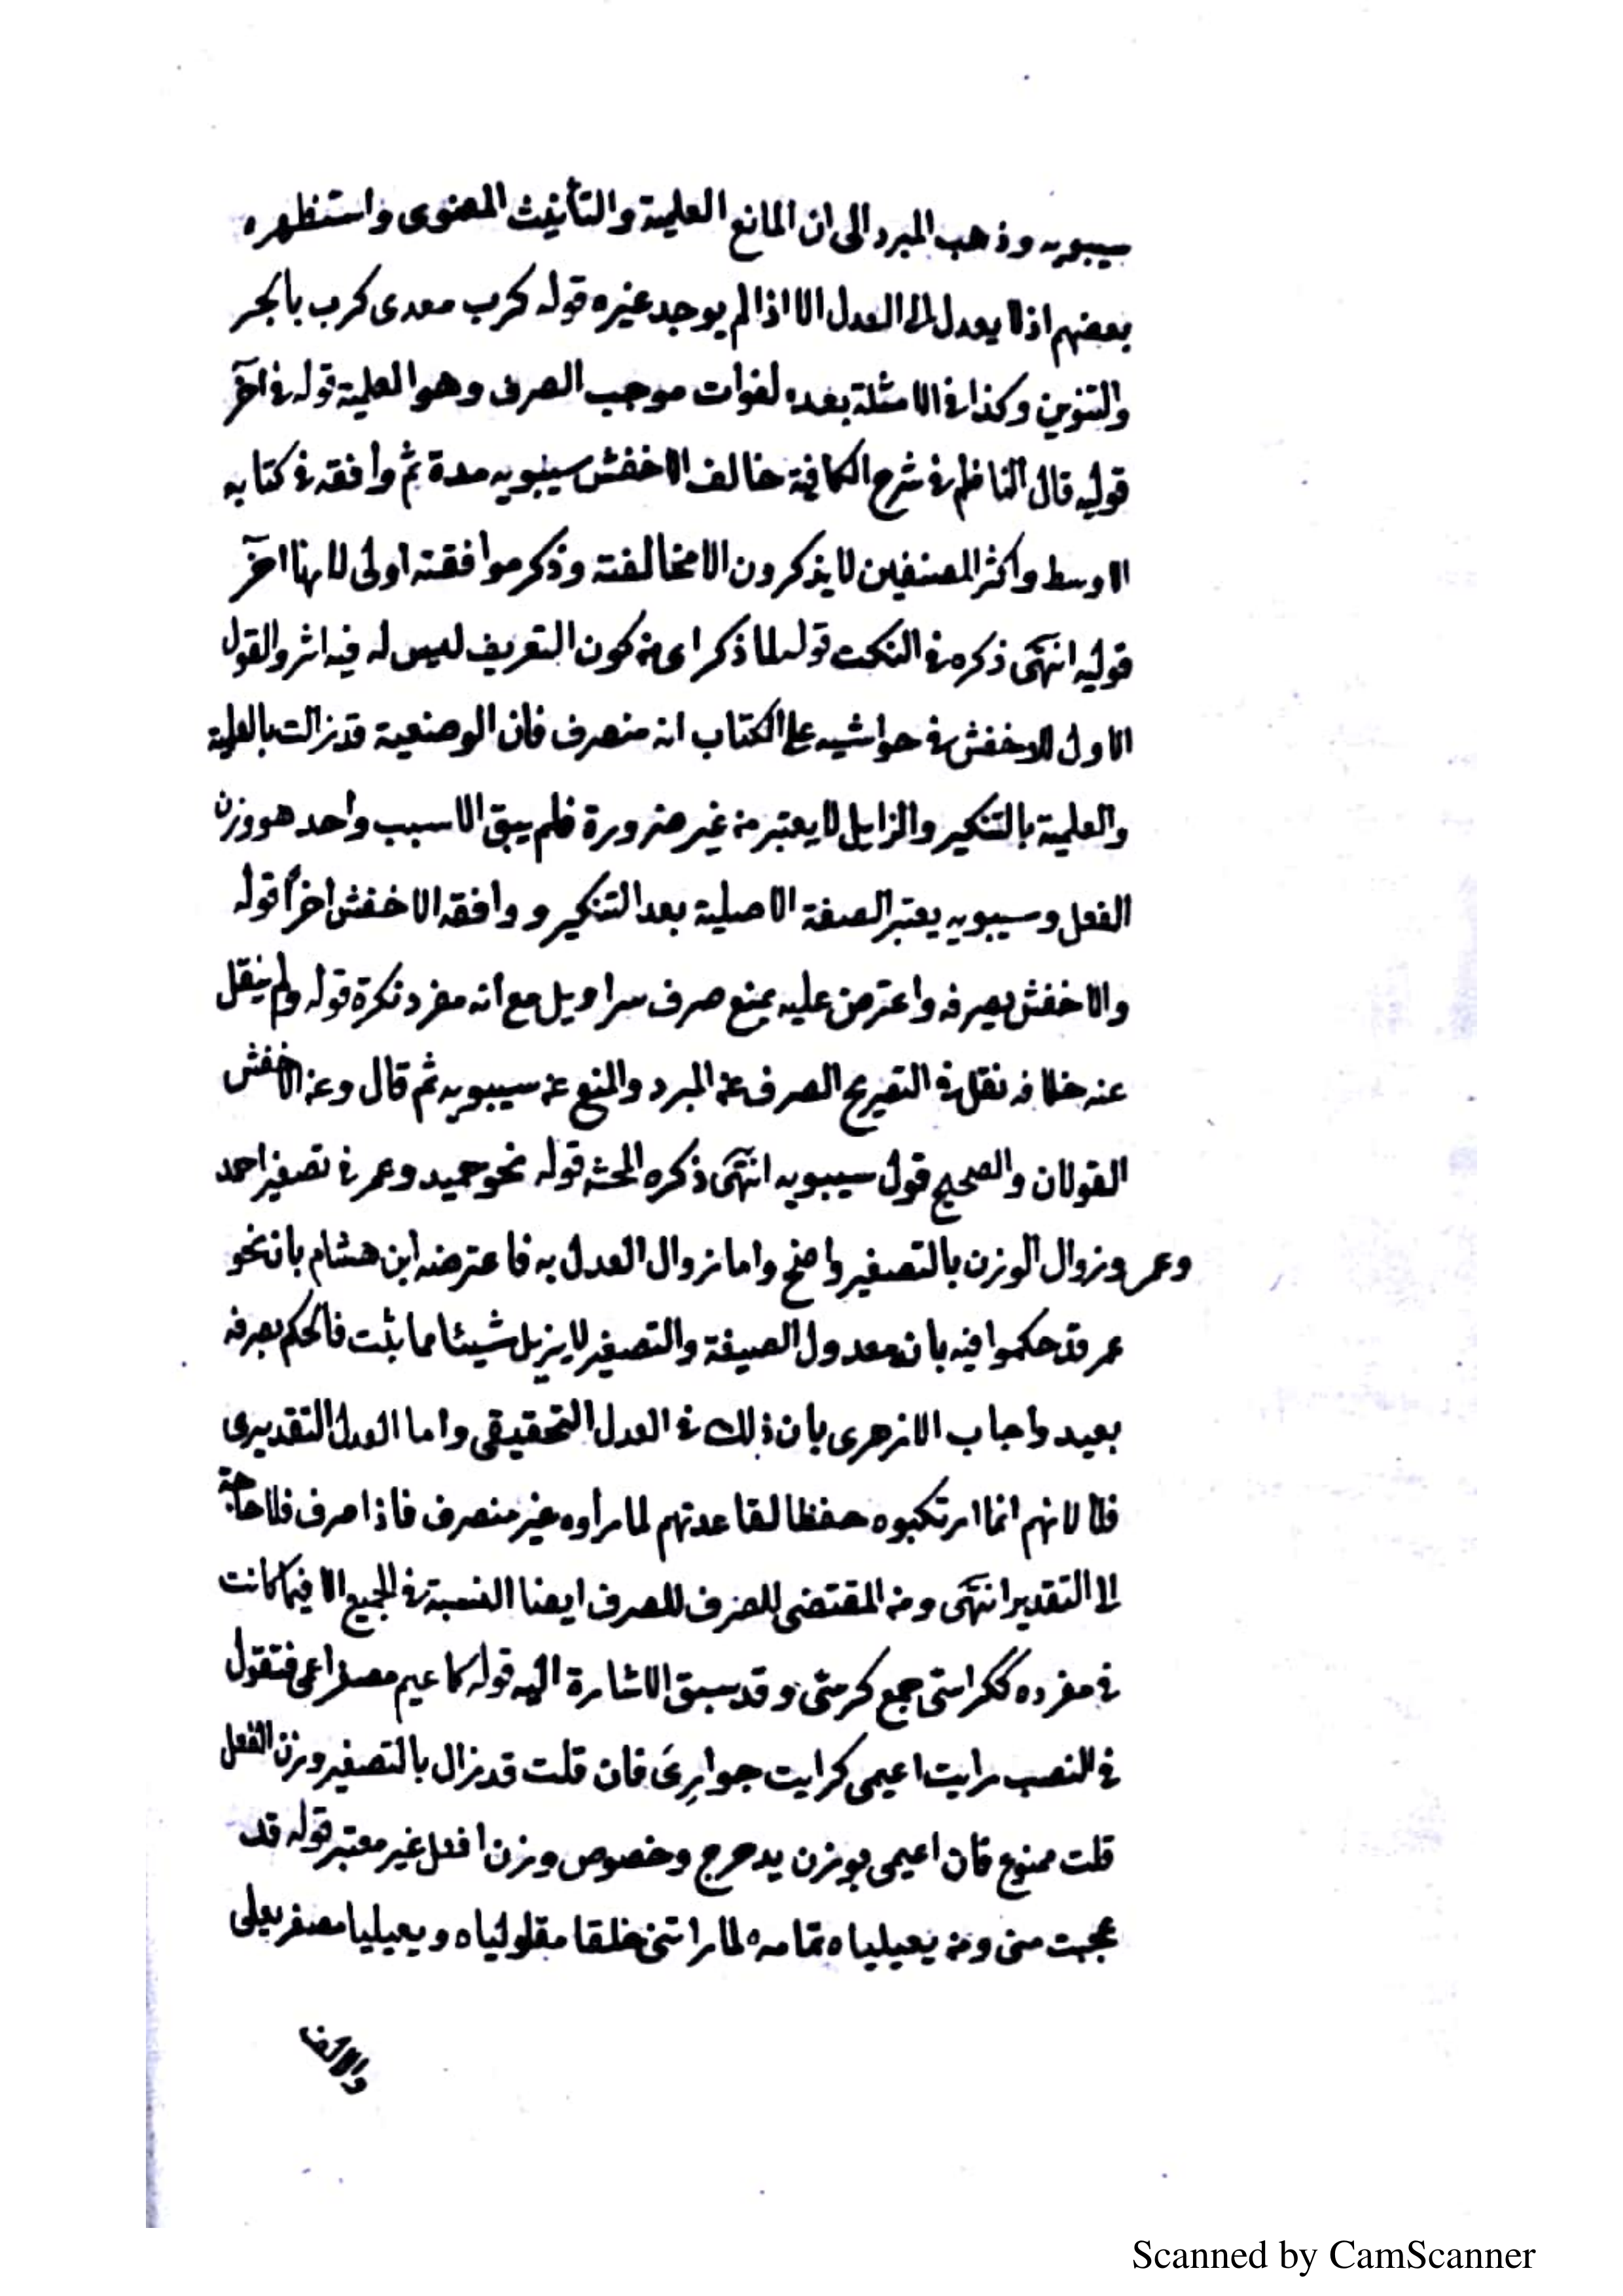 سيبويه وذهب المبرد الى ان المانع العلمية والتأنيث المعنوى واستظهره
بعضهم اذ لا يعدل الى العدل الا اذا لم يوجد غيره قوله كرب معدى كرب بالجر
والتنوين وكذا فى الامثلة بعده لفوات موجب الصرف وهو العلمية قوله فى آخر
قوليه قال الناظم فى شرح الكافية خالف الاخفش سيبويه مدة ثم وافقه فى كتابه
الاوسط واكثر المصنفين لا يذكرون الا مخالفته وذكر موافقته اولى لانها آخر
قوليه انتهى ذكره فى النكت قوله لما ذكر اى من كون التعريف ليس له فيه اثر والقول
الاول للاخفش فى حواشيه على الكتاب انه منصرف فان الوصفية قد زالت بالعلمية
والعلمية بالتنكير والزايل لا يعتبر من غير ضرورة فلم يبق الا سبب واحد هو وزن
الفعل وسيبويه يعتبر الصفة الاصلية بعد التنكير ووافقه الاخفش اخرا قوله
والاخفش يصرفه واعترض عليه بمنع صرف سراويل مع انه مفرد نكرة قوله ولم ينقل
عنه خلافه نقل فى التصريح الصرف عن المبرد والمنع عن سيبويه ثم قال وعن الاخفش
القولان والصحيح قول سيبويه انتهى ذكره المحشى قوله نحو حميد وعمر فى تصغير احمد
وعمر وزوال الوزن بالتصغير واضح واما زوال العدل به فاعترضه ابن هشام بان نحو
عمر قد حكموا فيه بانه معدول الصيغة والتصغير لا يزيل شيئا مما ثبت فالحكم بصرفه
بعيد واجاب الازهرى بان ذلك فى العدل التحقيقى واما العدل التقديرى
فلا لانهم انما ارتكبوه حفظا لقاعدتهم لما راوه غير منصرف فاذا صرف فلا حاجة
الى التقدير انتهى ومن المقتضى للصرف للصرف ايضا النسبة فى الجميع الا فيما كانت
فى مفرده ككراسى جمع كرسى وقد سبق الاشارة اليه قوله كاعيم مصغر اعمى فتقول
فى النصب رايت اعيمى كرايت جوارى فان قلت قد زال بالتصغير وزن الفعل
قلت ممنوع فان اعيمى بوزن يدحرج وخصوص وزن افعل غير معتبر قوله قد
عجبت منى ومن يعيليا تمامه لما راتنى خلقا مقلوليا ويعيليا مصغر يعلى
والالف
Scanned by CamScanner